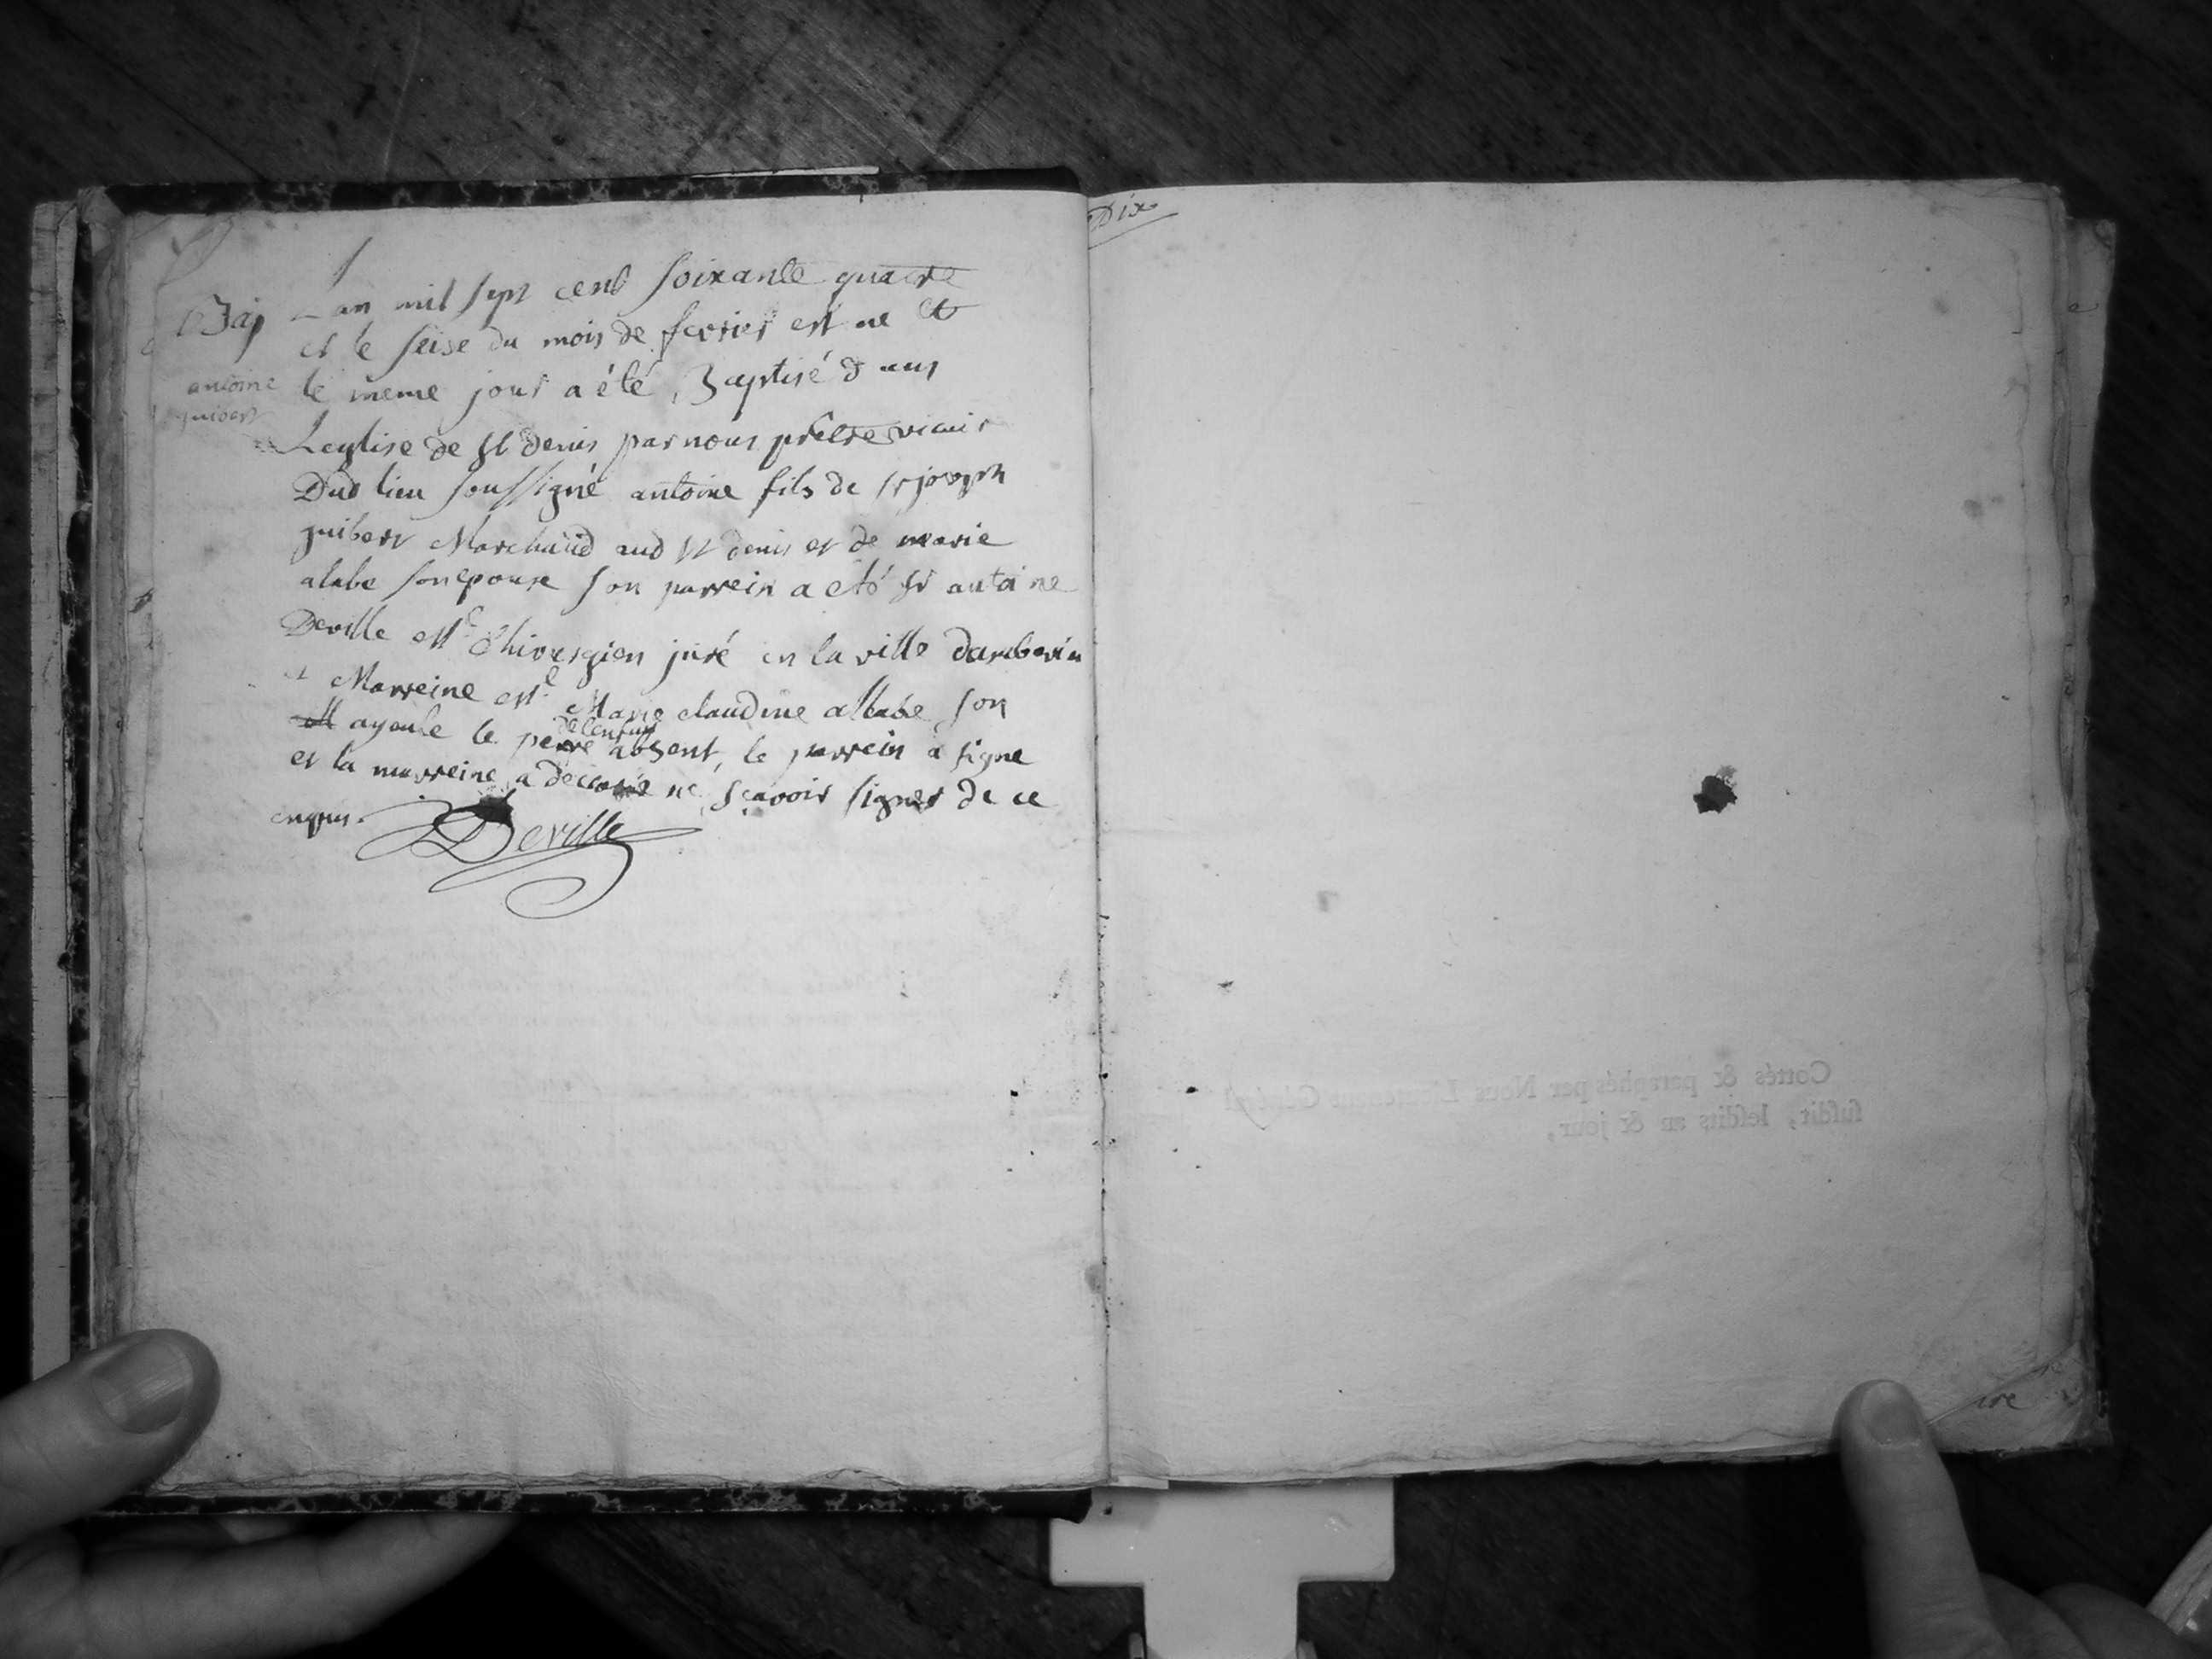 Bap
antoine
guibert
Lan mil sept cent soixante quatre
et le seise du mois de fevrier est ne et
le meme jour a été Baptisé dans
Leglise de st denis par nous prêtre vicair
Dud lieu soussigné antoine fils de sr joseph
guibert Marchand aud st denis et de marie
alabe son epouse son parrein a eté sr antoine
Deville Me Chirurgien juré en la ville dambert
et Marreine Mle Marie claudine allabe son
ayeule le pere de lenfant absent, le parrein a signe
et la marreine a declaré ne sçavoir signer de ce
enquis.
Deville
Dix
Cottés & paraphés par Nous Lieutenant Général
susdit, lesdits an & jour,